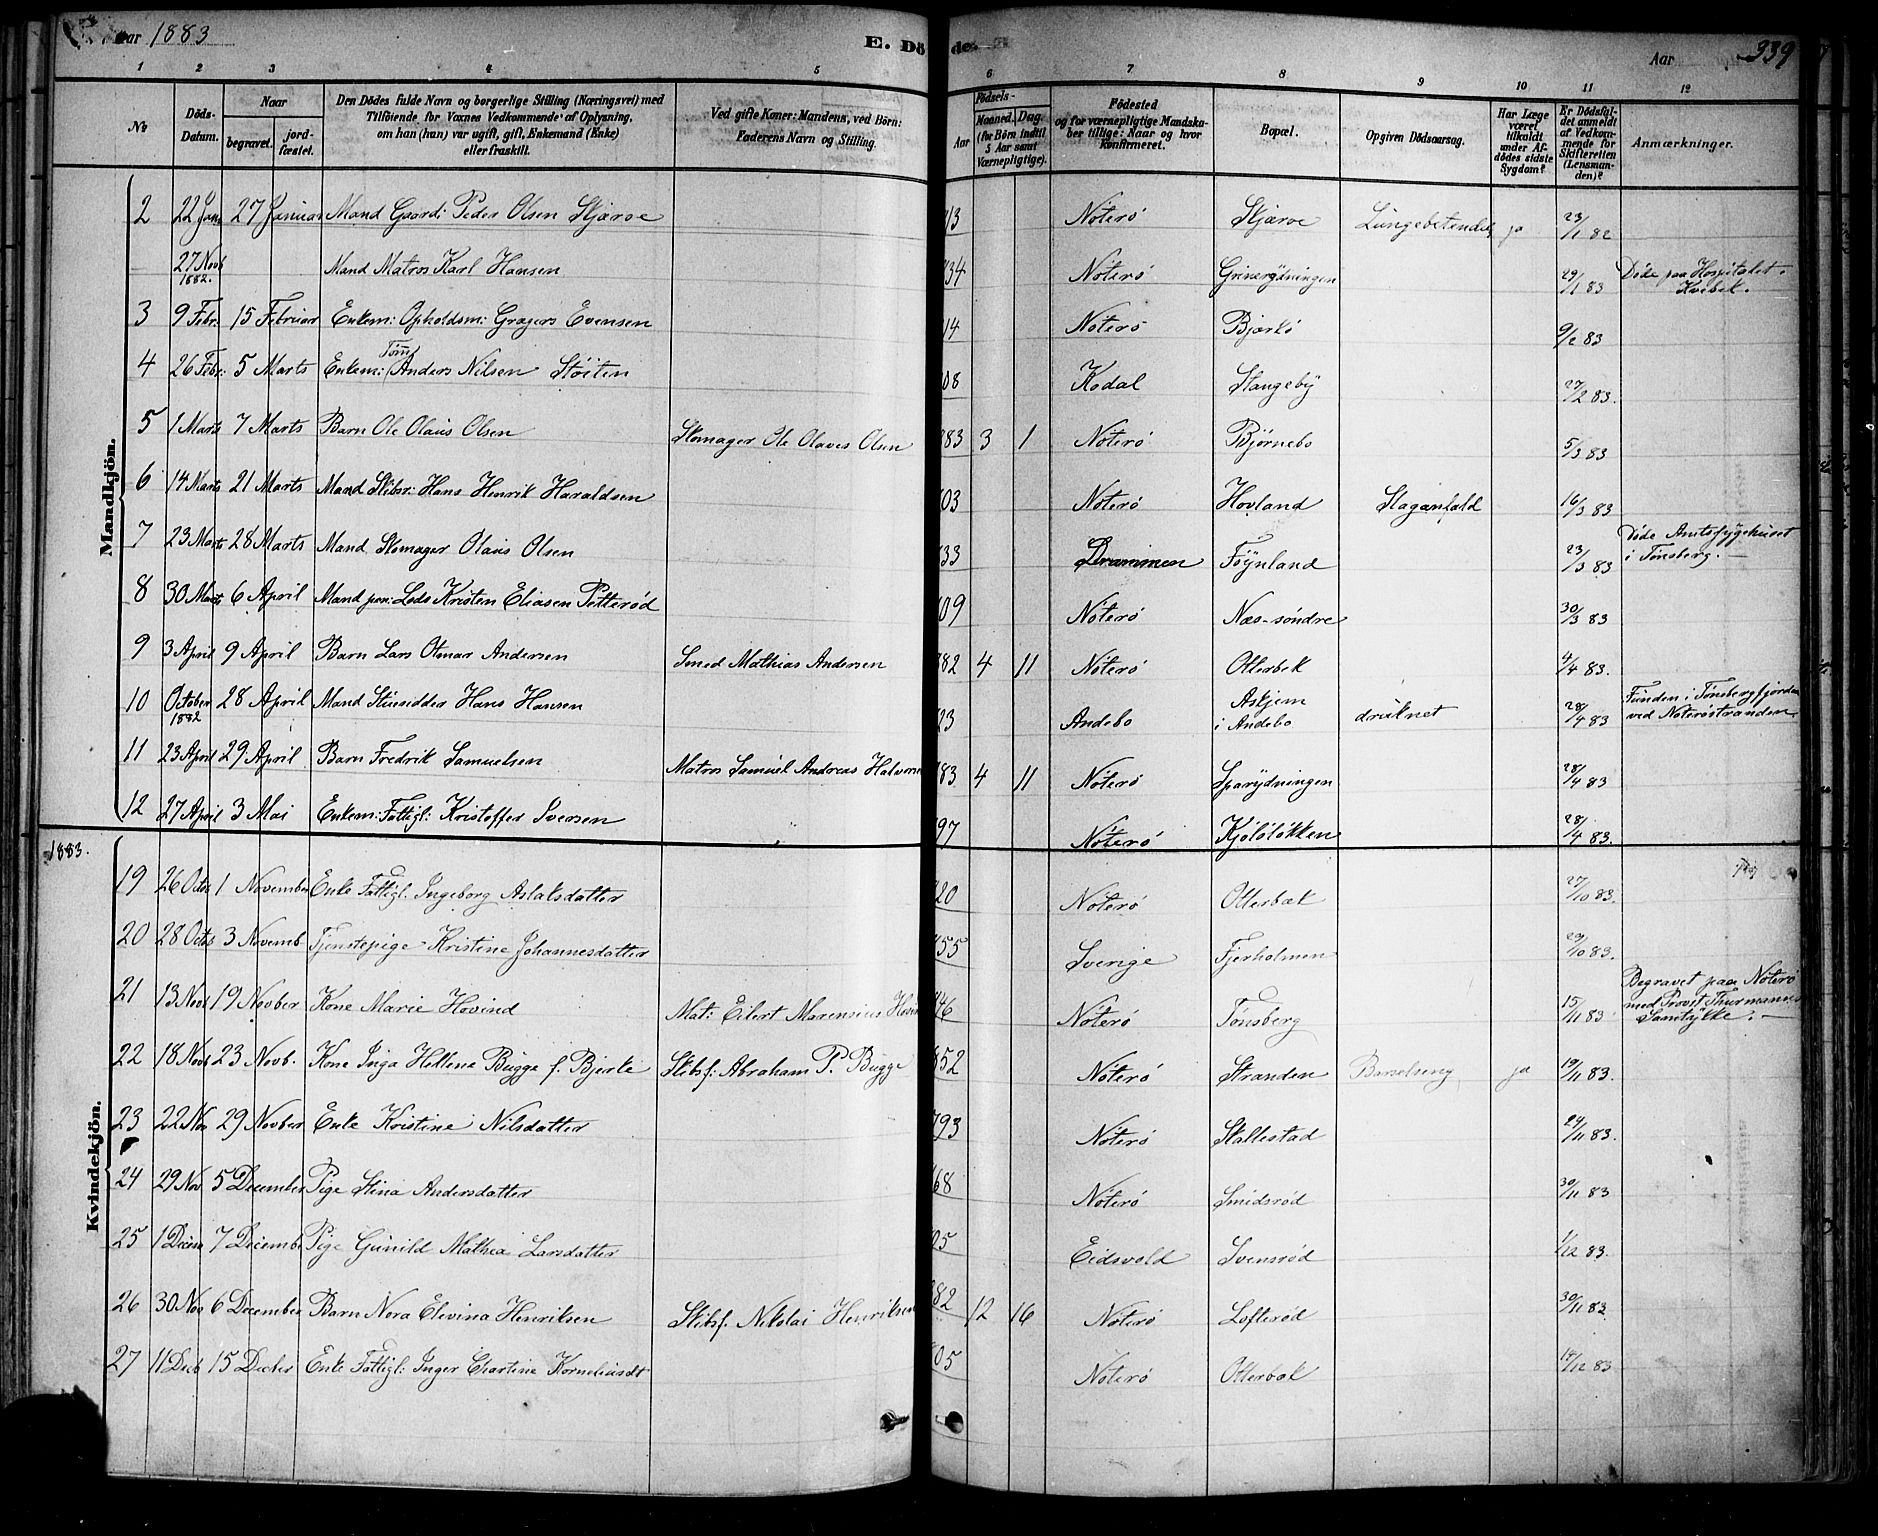 Aar 1883
E. Dö
de.
Aar
339
1 2 3 4 5 6 7 8 9 10 11 12
No
Döds-Datum.
Naar
begravet.
jord-fæstet.
Den Dödes fulde Navn og borgerlige Stilling (Næringsvei) med
Tilföiende for Voxnes Vedkommende af Oplysning,
om han (hun) var ugift, gift, Enkemand (Enke)
eller fraskilt.
Ved gifte Koner: Mandens, ved Börn:
Faderens Navn og Stilling.
Födsels-
Aar
Maaned.
Dag.
(for Börn indtil
5 Aar samt
Værnepligtige).
Födested
og for værnepligtige Mandska-
ber tillige: Naar og hvor
konfirmeret.
Bopæl.
Opgiven Dödsaarsag.
Har Læge
været
tilkaldt
under Af-
dödes sidste
Sygdom?
Er Dödsfal-
det anmeldt
af Vedkom-
mende for
Skifteretten
(Lensman-
den)?
Anmærkninger.
Mandkjön.
2 22 Jan 27 Januar Mand Gaardb: Peder Olsen Skjærve 13 Nöterö Skjærve Lungebetendels ja 23/1 82
27 Novb 1882. Mand Matros Karl Hansen 34 Nöterö Grinerydningen 29/1 83 Döde paa Hospitalet i
Kvebek.
3 9 Febr: 15 Februar Enkem: Opholdsm: Gregers Evensen 14 Nöterö Bjerkö 9/2 83
4 26 Febr: 5 Marts Enkem: Tömr Anders Nilsen Stöiten 08 Kodal Stangeby 27/2 83.
5 1 Marts 7 Marts Barn Ole Olaüs Olsen Skomager Ole Olaves Olsen 83 3 1 Nöterö Björnebo 5/3 83
6 14 Marts 21 Marts Mand Skibsr: Hans Henrik Haraldsen 03 Nöterö Hovland Slaganfald 16/3 83
7 23 Marts 28 Marts Mand Skomager Olaüs Olsen 33 Drammen Föynland 23/3 83 Döde Amtssygehuset
i Tönsberg.
8 30 Marts 6 April Mand pen: Lods Kristen Eliasen Petteröd 09 Nöterö Næs-söndre 30/3 83
9 3 April 9 April Barn Lars Otmar Andersen Smed Mathias Andersen 82 4 11 Nöterö Otterbek 4/4 83.
10 October 1882 28 April Mand Stüesidder Hans Hansen 23 Andebo Askjem
i Andebo drüknet 28/4 83 Fünden i Tönsbergfjorden
ved Nöteröstranden.
11 23 April 29 April Barn Fredrik Samuelsen Matros Samüel Andreas Halvorse 83 4 11 Nöterö Sparydningen 28/4 83
12 27 April 3 Mai Enkem: Fattigl: Kristoffer Iversen 97 Nöterö Kjölölökken 28/4 83.
1883.
Kvindekjön.
19 26 Octob 1 November Enke Fattigl. Ingeborg Aslaksdatter 20 Nöterö Otterbæk 27/10 83.
20 28 Octob 3 Novemb Tjenstepige Kristine Johannesdatter 55 Sverige Fjerholmen 29/10 83.
21 13 Novb 19 Novber Kone Marie Hovind Mat: Eilert Marensius Hovin 46 Nöterö Tönsberg 15/11 83 Begravet paa Nöterö
med Provst Thurmanns
Samtykke.
22 18 Novb 23 Novb. Kone Inga Hellene Bügge f. Bjerke Skibsf: Abraham P. Bügge 852 Nöterö Stranden Barselseng ja 19/11 83.
23 22 Nov 29 Novber Enke Kristine Nilsdatter 793 Nöterö Skallestad 24/11 83.
24 29 Nov 5 December Pige Stina Andersdatter 68 Nöterö Smidsröd 30/11 83
25 1 Decem 7 Decembe Pige Günild Mathea Larsdatter 05 Eidsvold Svensröd 1/12 83.
26 30 Nov 6 December Barn Nora Elevina Henriksen Skibsf. Nikolai Henriksen 82 12 16 Nöterö Lofteröd 30/11 83
27 11 Decb 15 Decber Enke Fattigl: Inger Chartine Korneliusdt 05 Nöterö Otterbæk 18/12 83